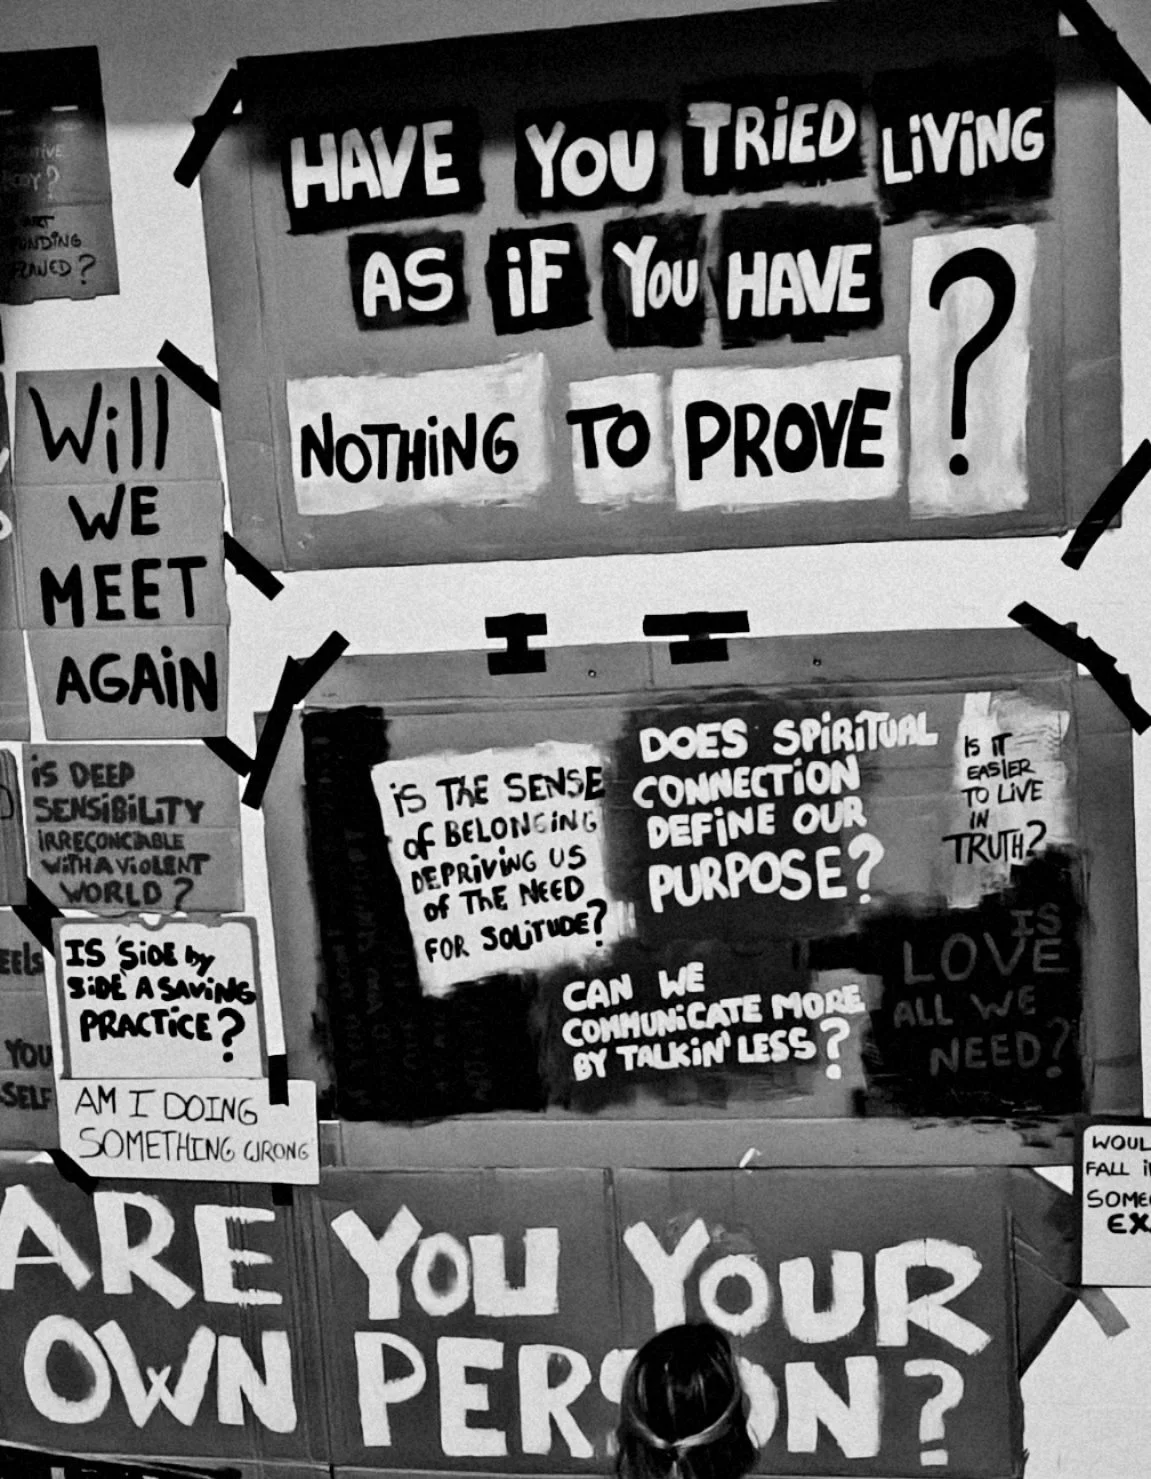 HAVE YOU TRiED LiViNG
AS iF YOU HAVE
NOTHiNG TO PROVE ?
ART
FUNDiNG
FLAWED ?
Will
WE
MEET
AGAiN
iS DEEP
SENSiBiLiTY
iRRECONCiABLE
WiTH A ViOLENT
WORLD ?
IS 'SiDE by
SiDE' A SAViNG
PRACTiCE ?
AM I DOING
SOMETHING WRONG
YOU
SELF
iS THE SENSE
OF BELONGiNG
DEPRiViNG US
OF THE NEED
FOR SOLiTUDE?
DOES SPiRiTUAL
CONNECTiON
DEFiNE OUR
PURPOSE?
IS iT
EASiER
TO LiVE
iN
TRUTH?
CAN WE
COMMUNiCATE MORE
BY TALKiN' LESS ?
IS
LOVE
ALL WE
NEED?
WOUL
FALL i
SOME
EX
ARE YOU YOUR
OWN PERSON?